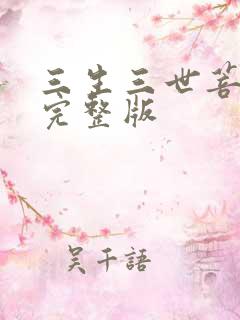 三生三世菩
完整版
吴千語